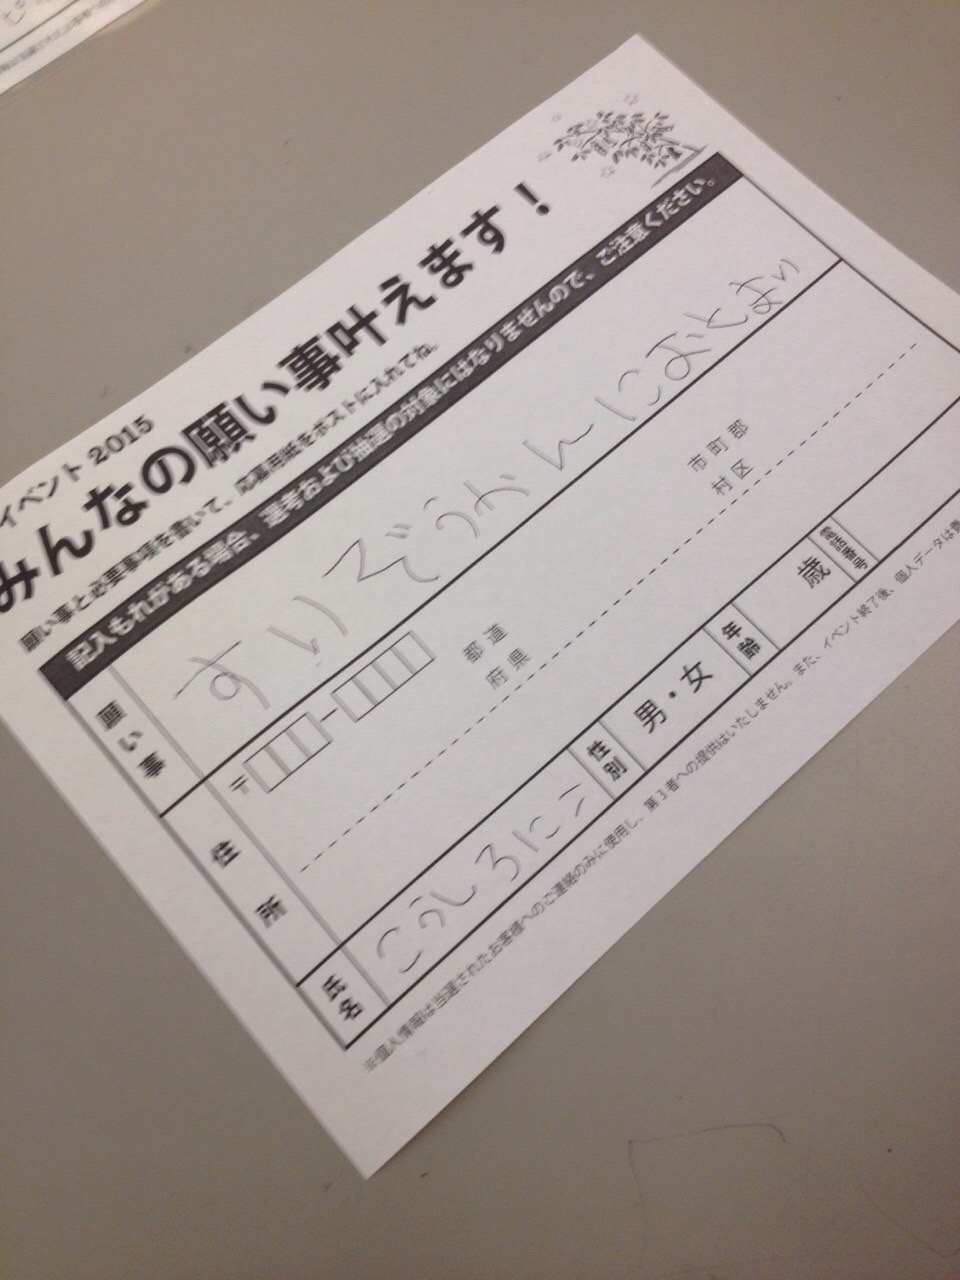 イベント 2015
みんなの願い事叶えます！
願い事と必要事項を書いて、応募用紙をポストに入れてね。
記入もれがある場合、選考および抽選の対象にはなりませんので、ご注意ください。
願い事
すいぞうかんにおとまり
住所
〒
都道府県
市町村郡区
氏名
こうしろにに
性別
男・女
年齢
歳
電話番号
※個人情報は当選されたお客様へのご連絡のみに使用し、第3者への提供はいたしません。また、イベント終了後、個人データは